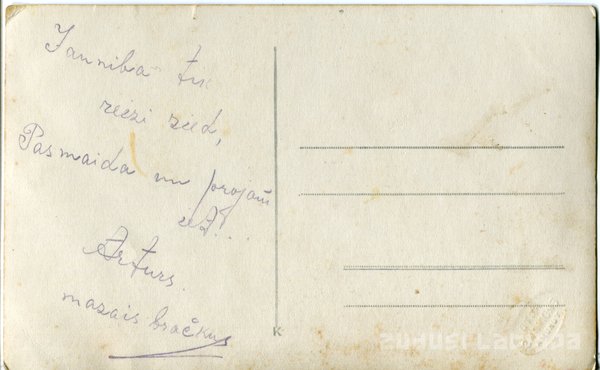 Jaunība tik
reizi zied,
Pasmaida un projām
iet!..
Arturs.
mazais bračkus
K
ZUDUSI LATVIJA